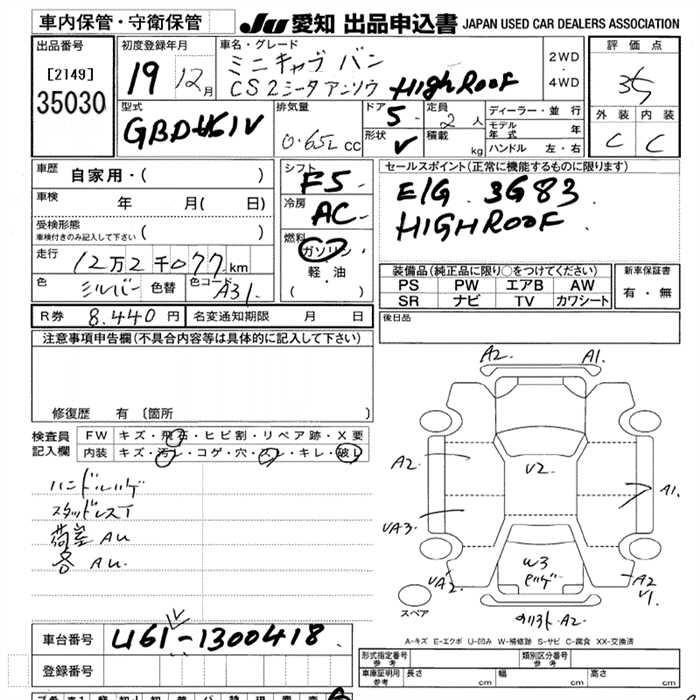 車内保管・守衛保管
JU 愛知 出品申込書 JAPAN USED CAR DEALERS ASSOCIATION
出品番号
[2149]
35030
初度登録年月
19 12月
車名・グレード
ミニキャブ バン
CS2シータアンソウ HighRoof
2WD
4WD
評価点
3.5
外装 内装
C C
型式
GBDU61V
排気量
0.65L cc
ドア 5
形状 V
定員 2 人
積載 kg
ディーラー・並行
モデル年式 年
ハンドル 左・右
車歴
自家用・( )
車検 年 月( 日)
受検形態
車検付きのみ記入して下さい ( )
走行 12万2千077km
色 シルバー 色替 色コード A31
シフト F5
冷房 AC
燃料
ガソリン
軽・油
( )
セールスポイント(正常に機能するものに限ります)
E/G 3G83
HIGHROOF
装備品(純正品に限り○をつけてください)
PS PW エアB AW
SR ナビ TV カワシート
新車保証書
有・無
R券 8.440 円 名変通知期限 月 日
後日品
注意事項申告欄(不具合内容等は具体的に記入して下さい)
修復歴 有 〔箇所
検査員記入欄
FW キズ・飛石・ヒビ割・リペア跡・X要
内装 キズ・汚レ・コゲ・穴・スレ・キレ・破レ
ハンドルハゲ
スタッドレスT
荷室 AU
各 AU
A2 A1
A2 U2 A1
UA3
UA2 W3 A2
U1
A2
スペア
A-キズ E-エクボ U-凹み W-補修跡 S-サビ C-腐食 XX-交換済
車台番号 U61-1300418
登録番号
形式指定番号 参考
類別区分番号 参考
車庫証明用 参考 長さ cm 幅 cm 高さ cm